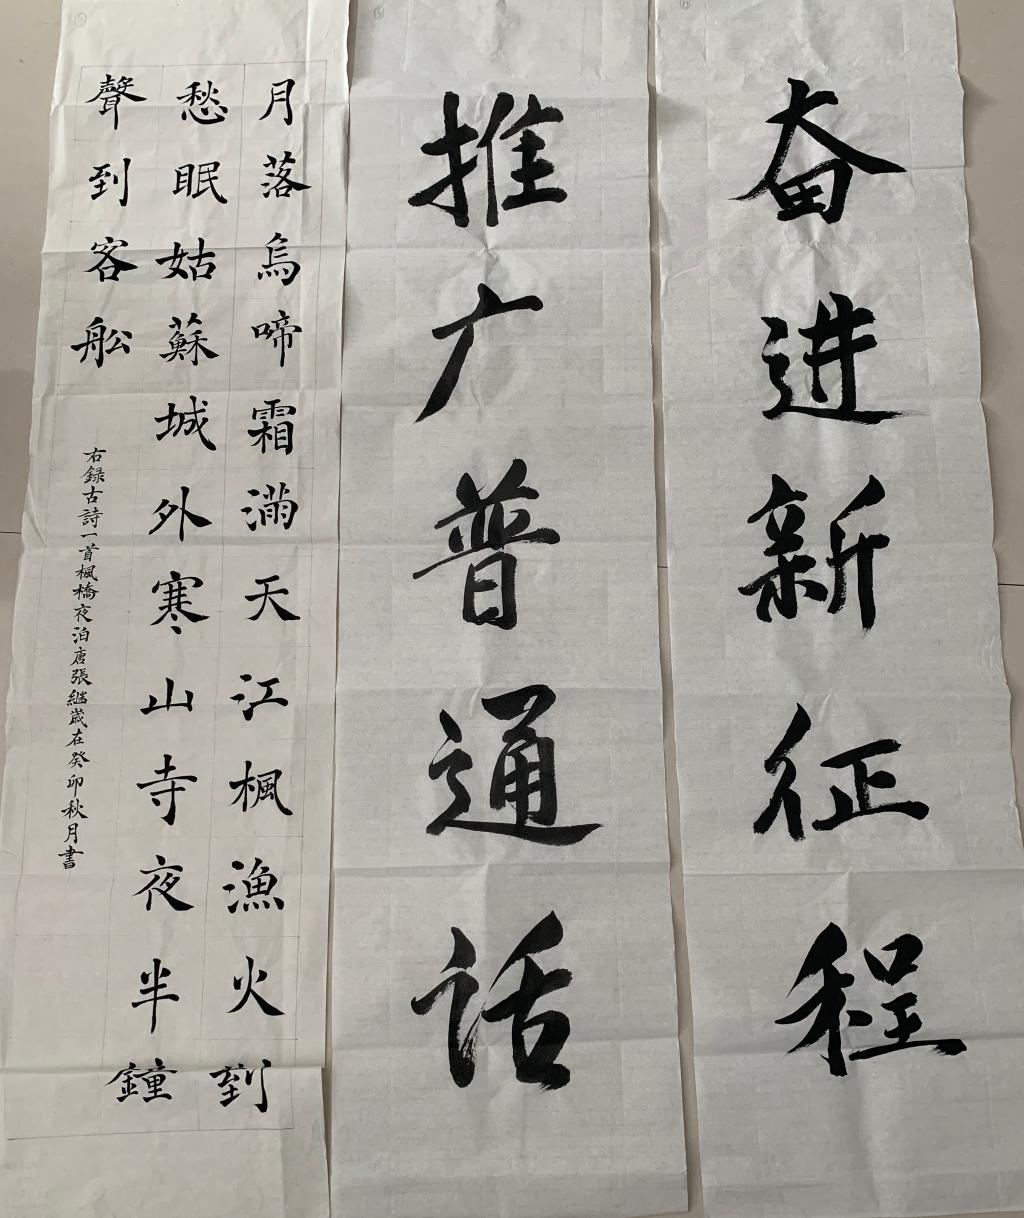 奋进新征程
推广普通话
月落烏啼霜满天江楓漁火到
愁眠姑蘇城外寒山寺夜半鐘
聲到客舩
右録古詩一首楓橋夜泊唐張継歲在癸卯秋月書